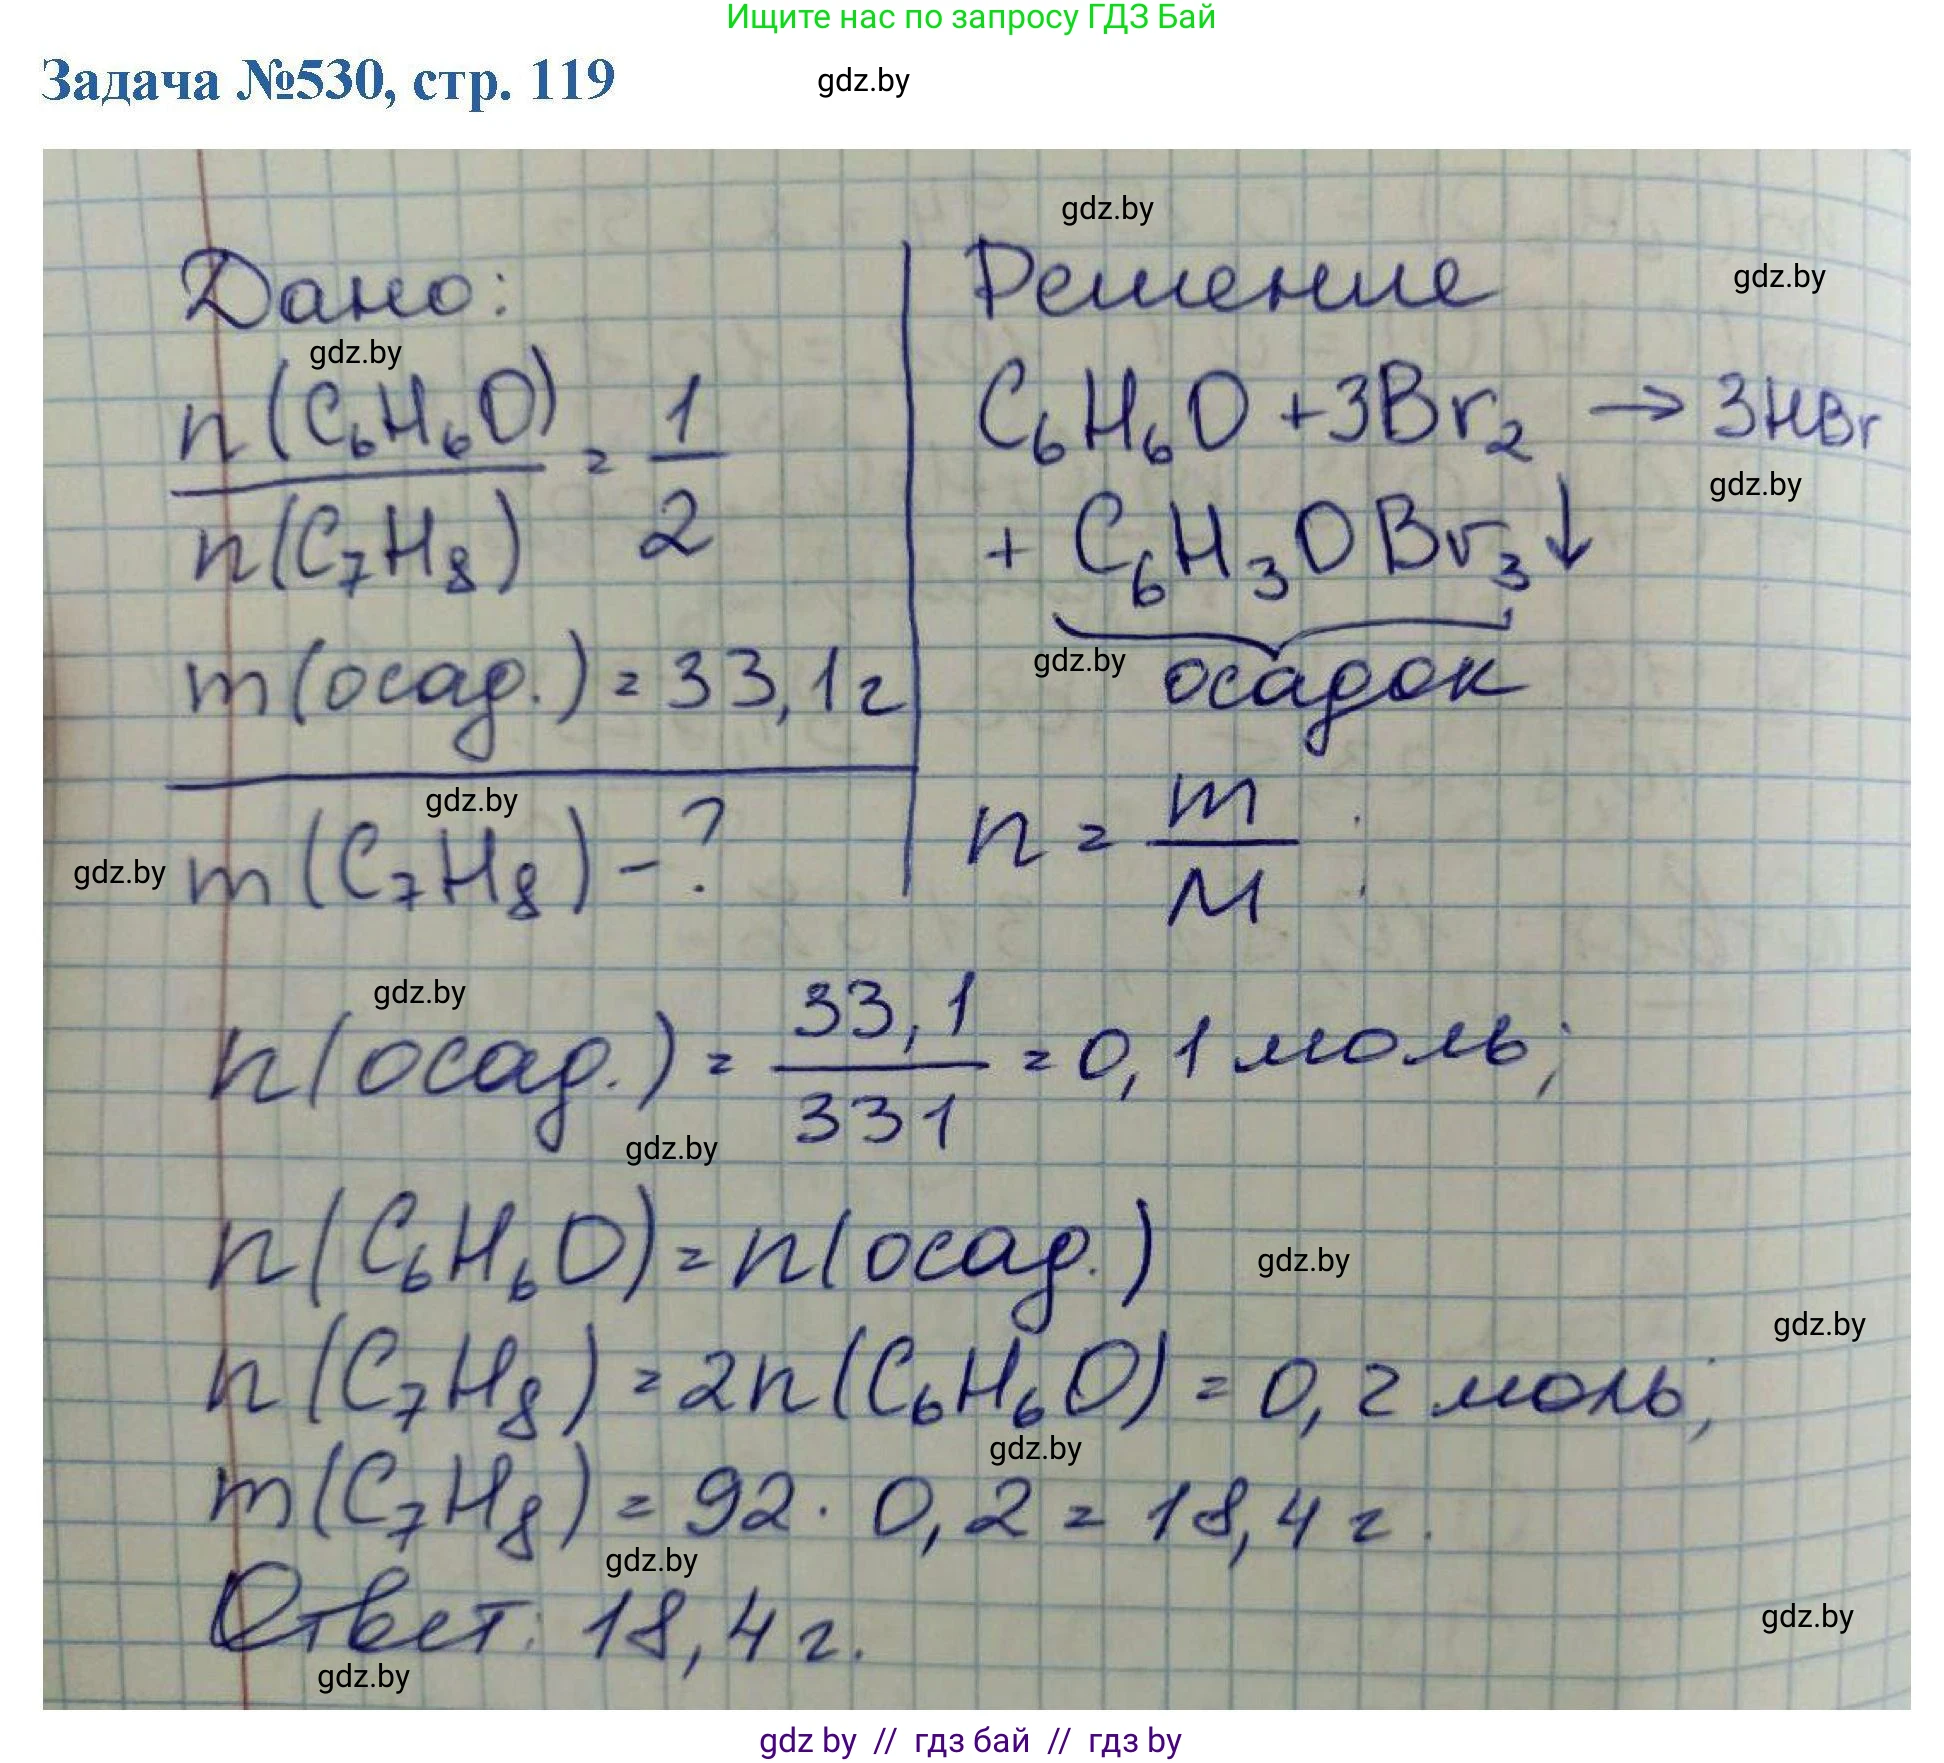 Ищите нас по запросу ГДЗ Бай
Задача №530, стр. 119
gdz.by
gdz.by
Дано:
Решение
gdz.by
gdz.by
n(C₆H₆O)/n(C₇H₈) = 1/2
C₆H₆O + 3Br₂ → 3HBr
gdz.by
+ C₆H₃OBr₃↓
gdz.by
осадок
m(осад.) = 33,1 г
gdz.by
m(C₇H₈) - ?
gdz.by
n = m/M ;
gdz.by
n(осад.) = 33,1/331 = 0,1 моль;
gdz.by
n(C₆H₆O) = n(осад.)
gdz.by
gdz.by
n(C₇H₈) = 2n(C₆H₆O) = 0,2 моль;
gdz.by
m(C₇H₈) = 92 · 0,2 = 18,4 г.
gdz.by
Ответ: 18,4 г.
gdz.by
gdz.by
gdz by // гдз бай // гдз by